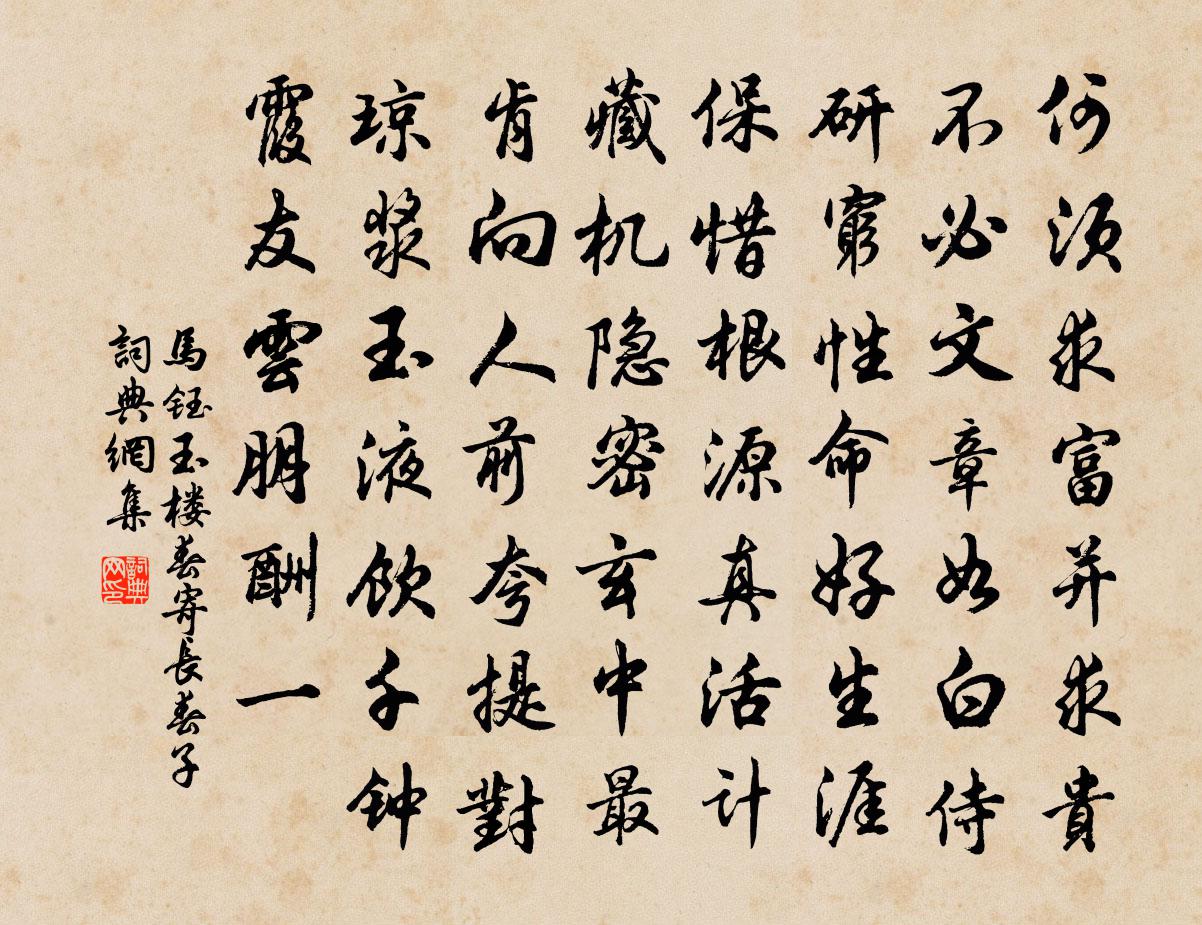 何须求富并求貴
不必文章如白侍
研窮性命好生涯
保惜根源真活计
藏机隐密玄中最
肯向人前夸提對
琼浆玉液饮千钟
霞友雲朋酬一
馬钰玉楼春寄長春子
詞典網集
詞典网印